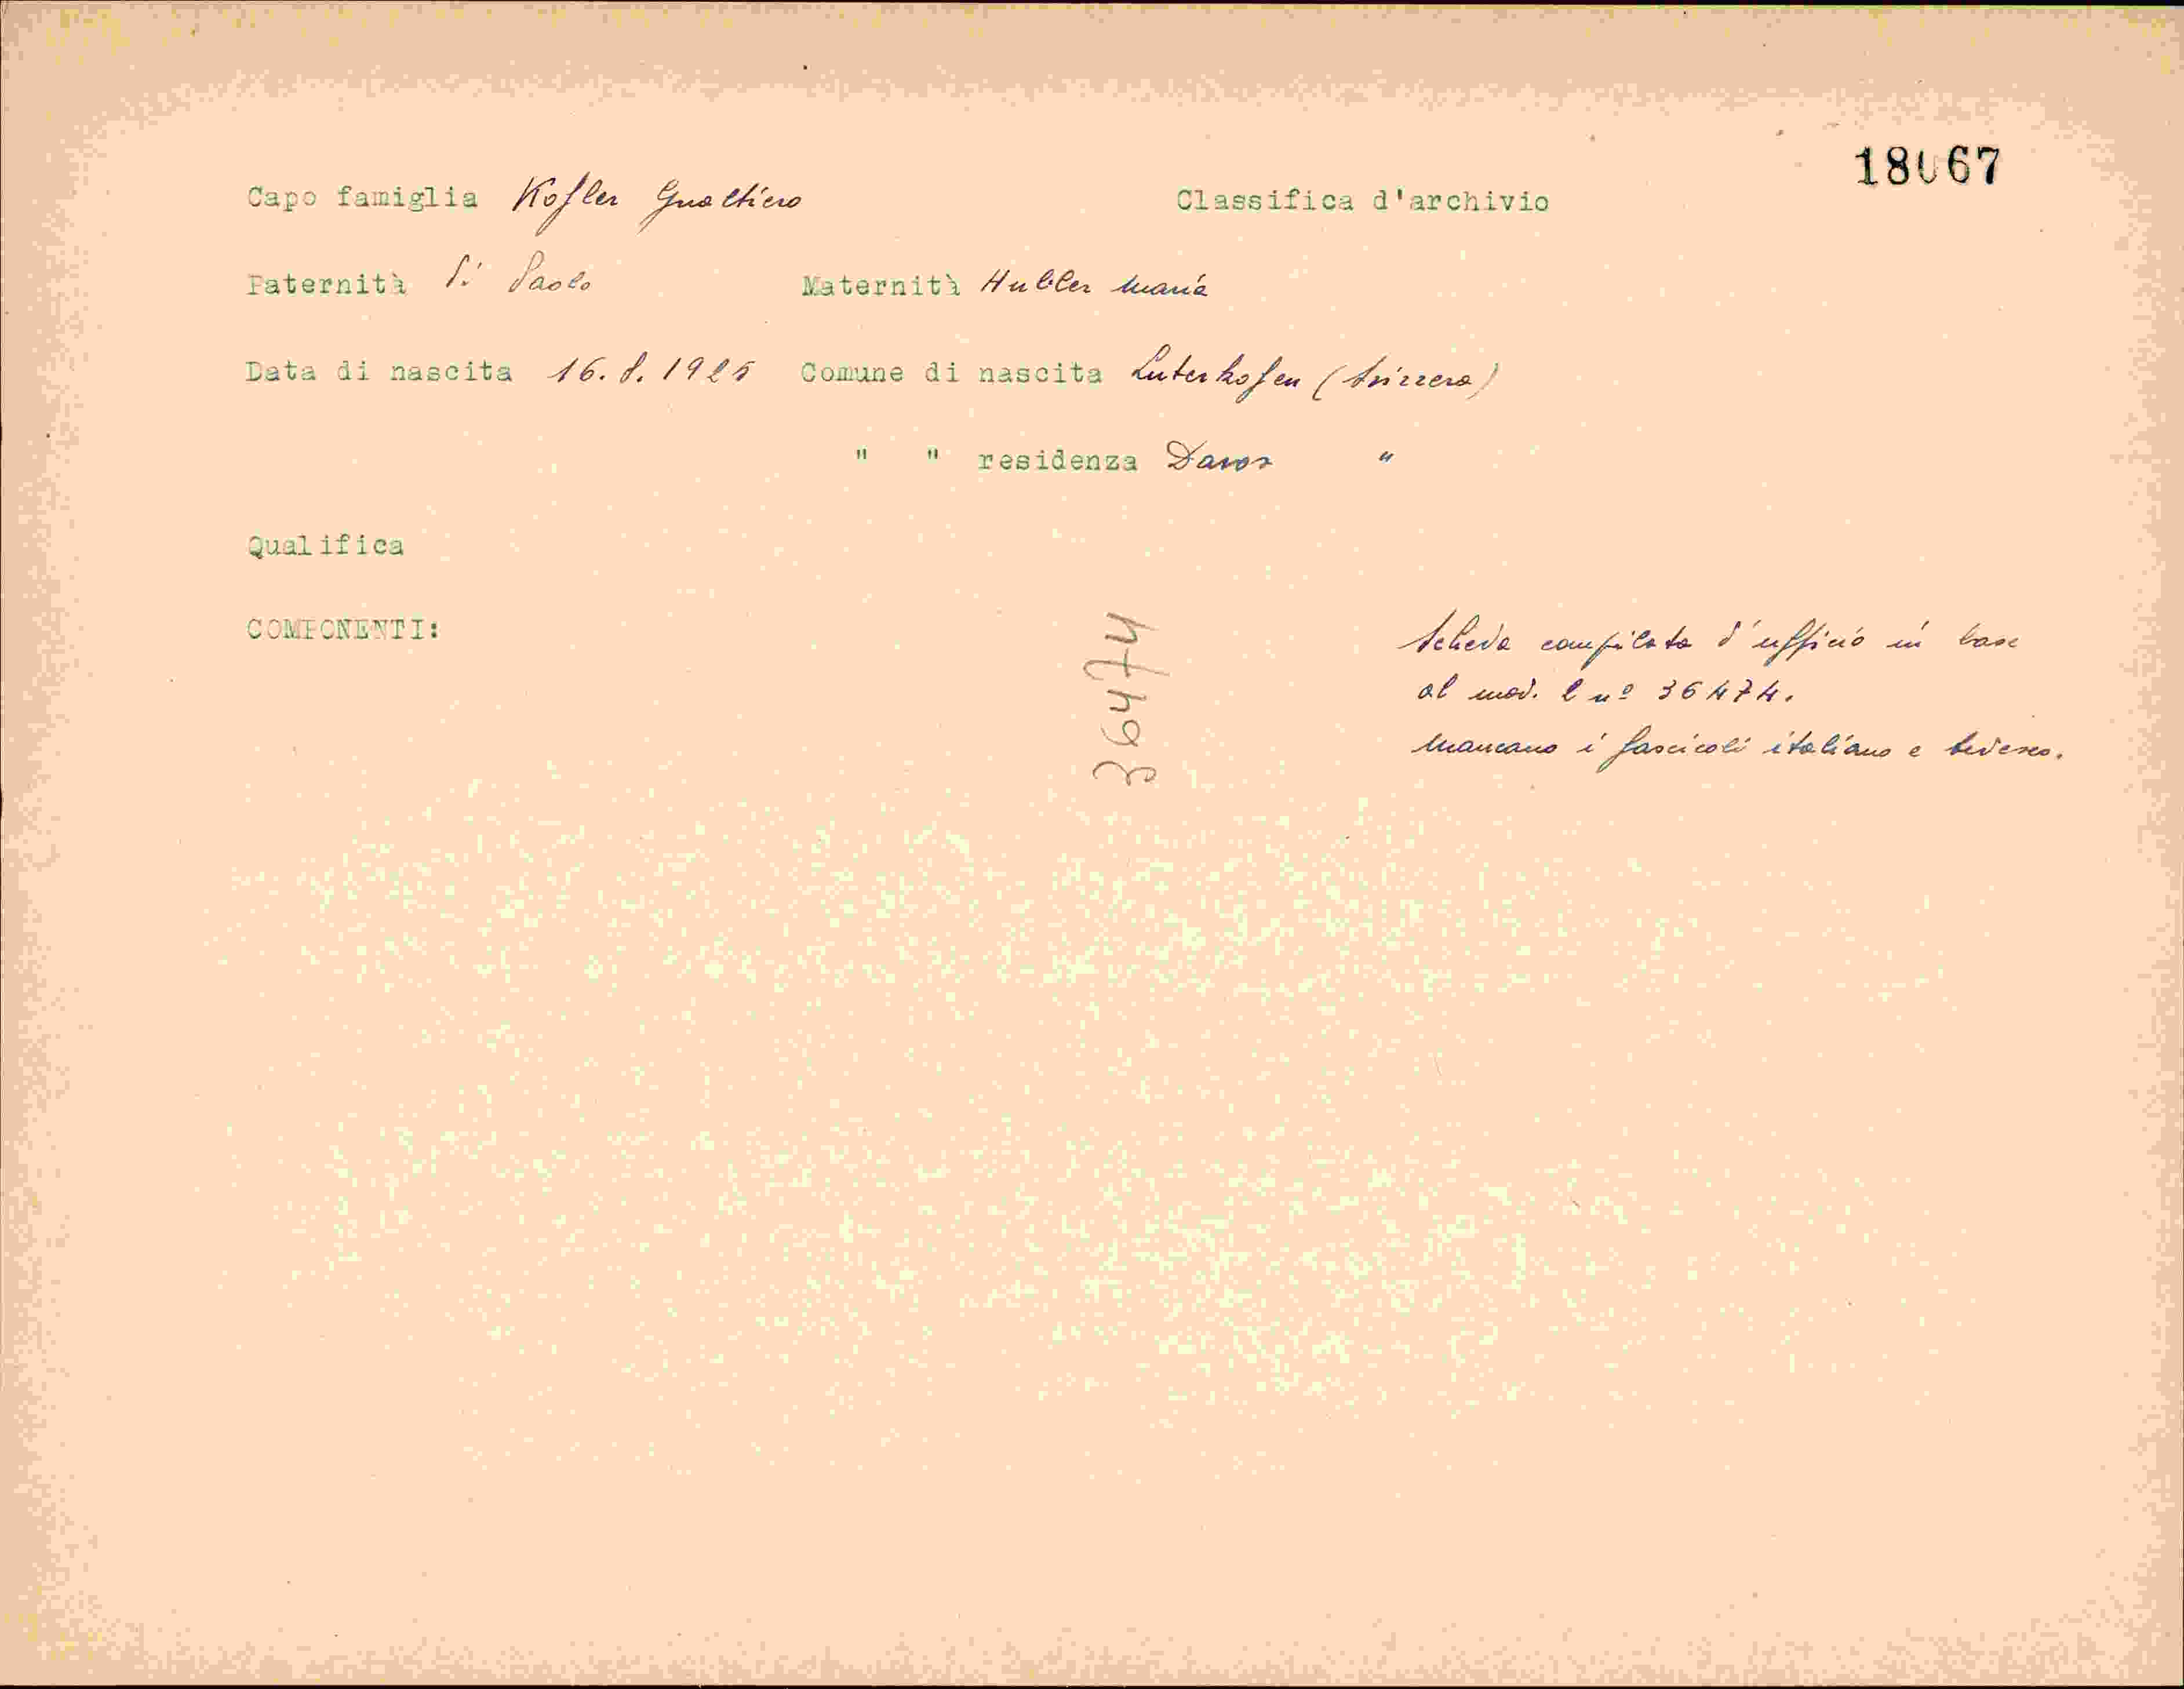 18067
Capo famiglia Kofler Gualtiero Classifica d'archivio
Paternità di Paolo Maternità Hubler Maria
Data di nascita 16.8.1925 Comune di nascita Luterkofen (Svizzera)
" " residenza Davos "
Qualifica
COMPONENTI:
36474
Scheda compilata d'ufficio in base
al mod. l nº 36474.
Mancano i fascicoli italiano e tedesco.